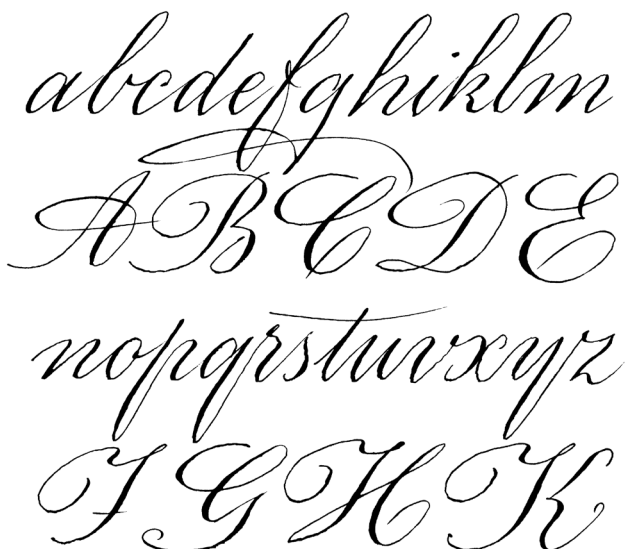 abcdefghiklm
ABCDE
nopqrstuvxyz
FGHK